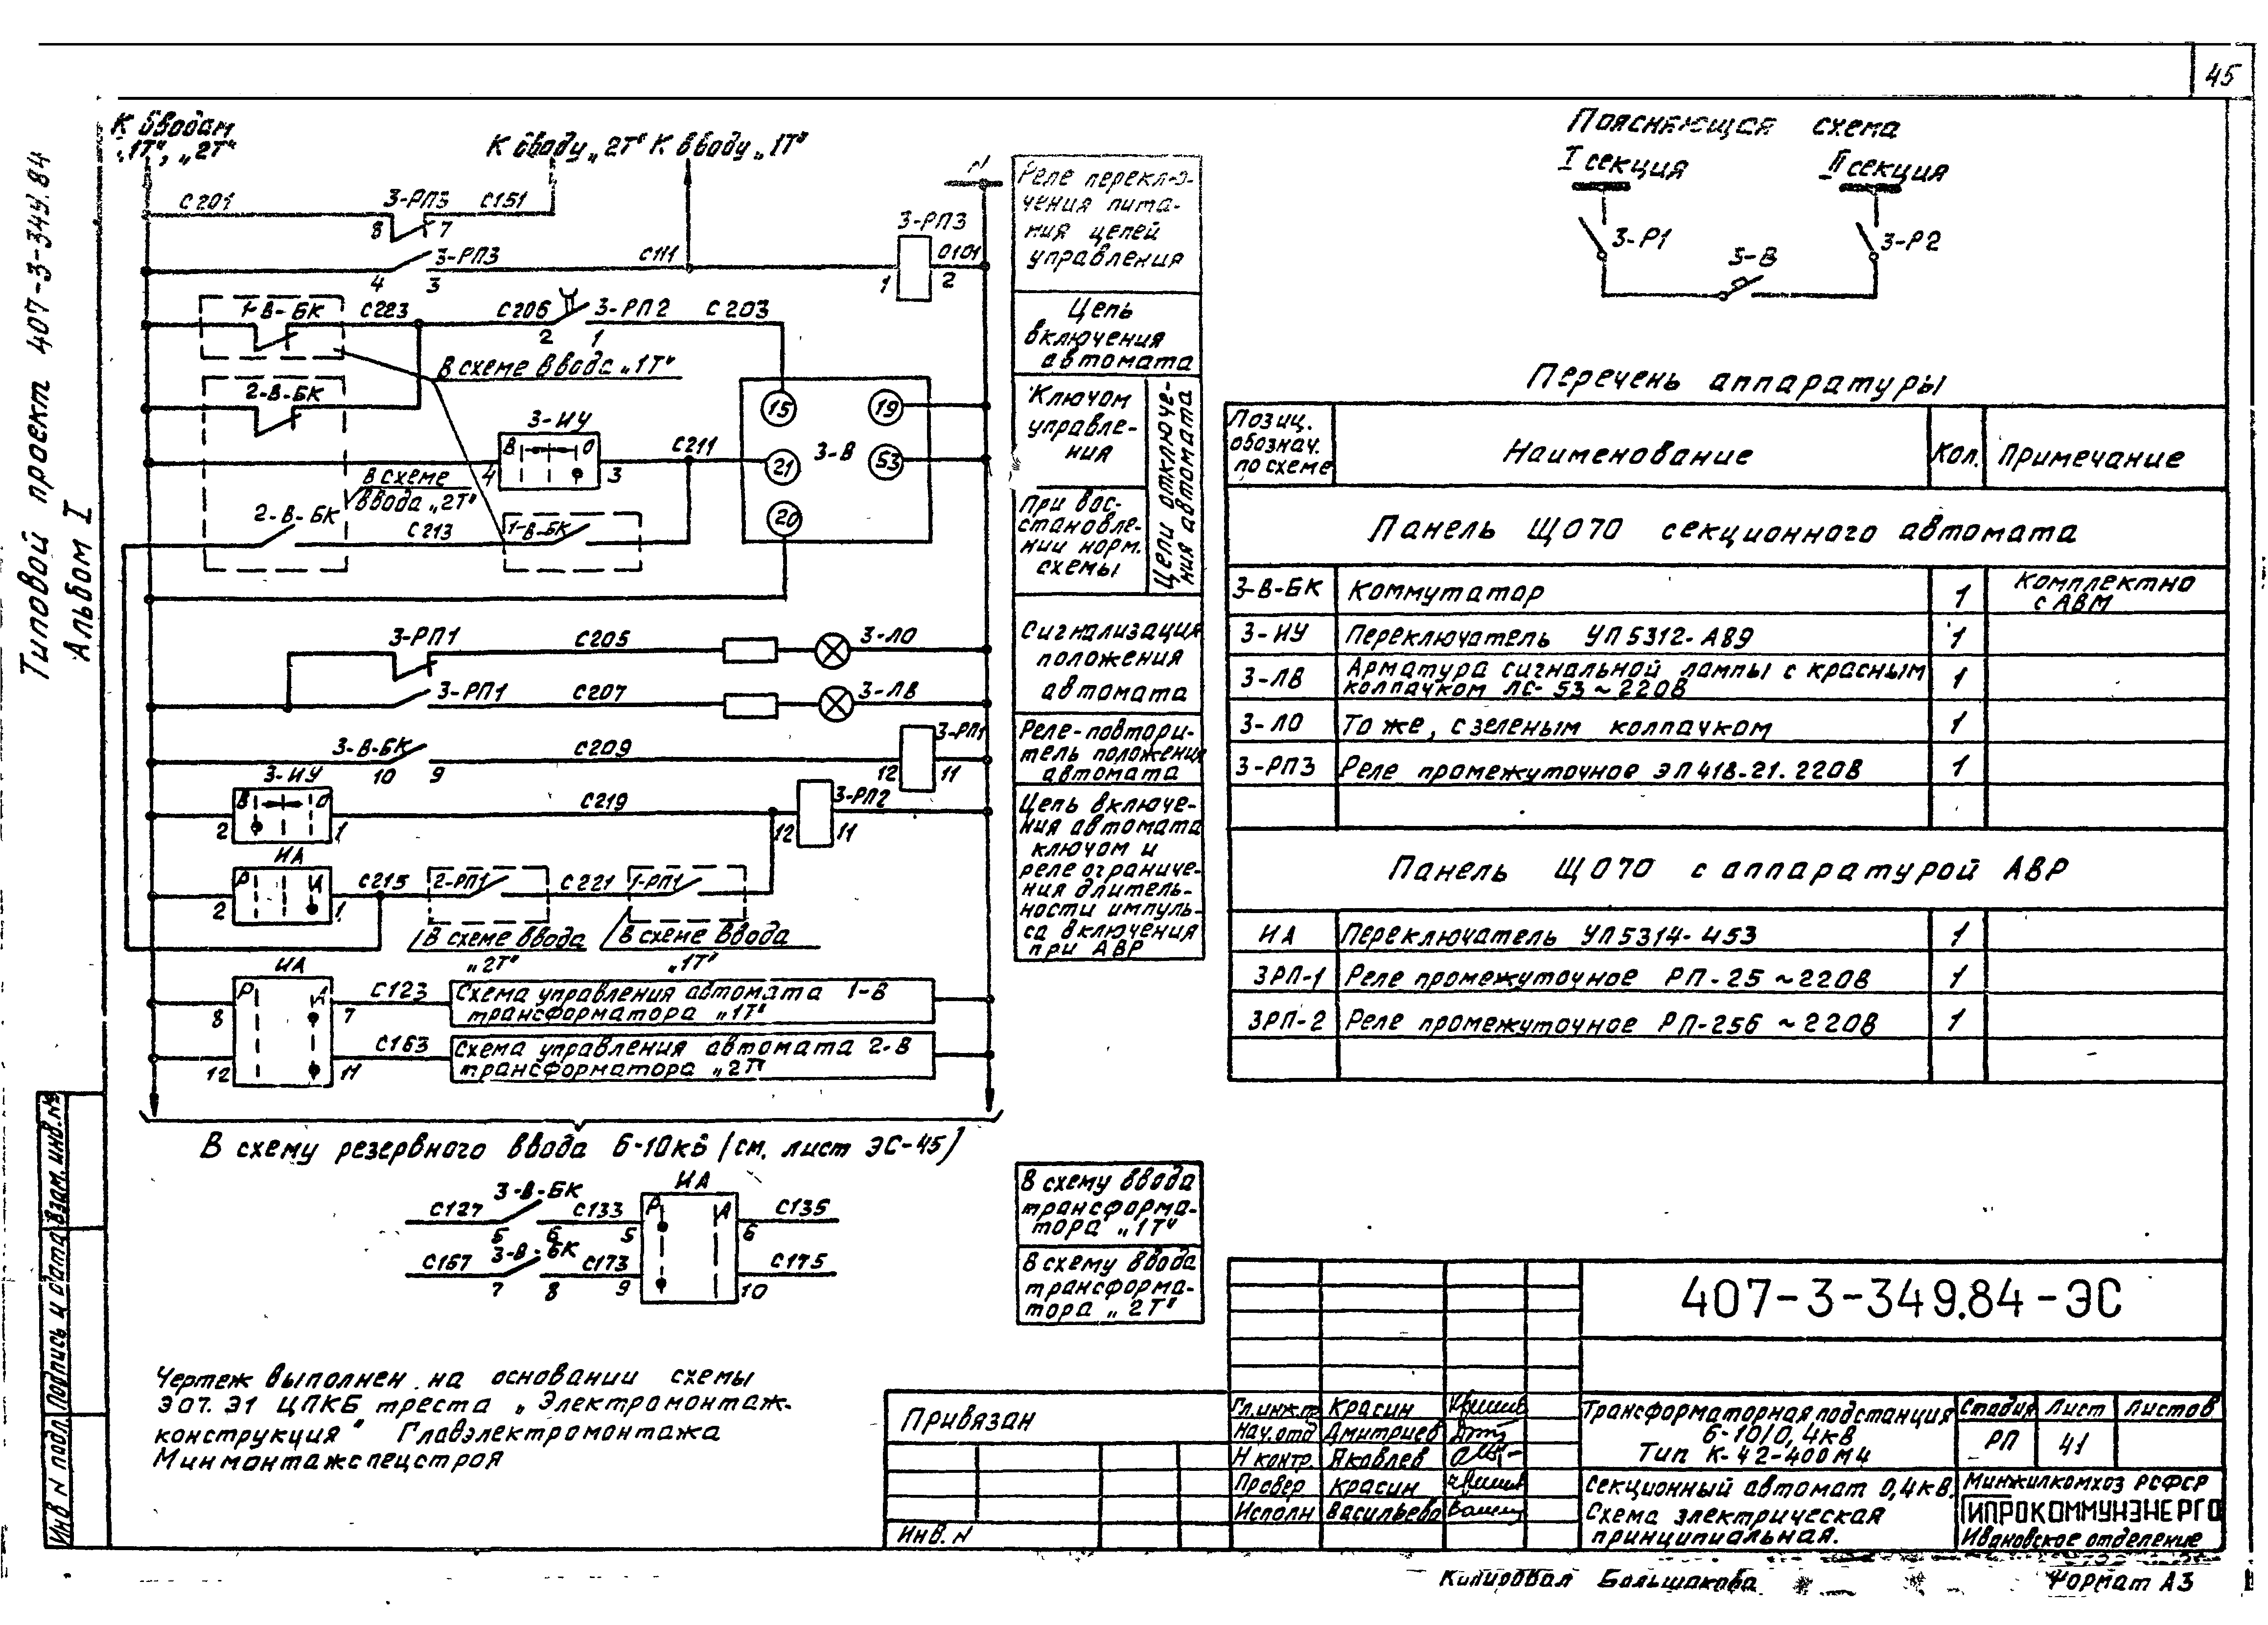 45
Типовой проект 407-3-349.84
Альбом I
К вводам
„1Т“, „2Т“
К вводу „2Т“ К вводу „1Т“
N
С201
3-РП3
С151
8
7
3-РП3
4
3
С111
3-РП3
0101
1
2
1-В-БК
С223
С206
3-РП2
С203
2
1
В схеме ввода „1Т“
2-В-БК
3-ИУ
В
О
4
3
С211
15
19
21
3-В
53
20
В схеме
ввода „2Т“
2-В-БК
С213
1-В-БК
3-РП1
С205
3-ЛО
3-РП1
С207
3-ЛВ
3-В-БК
10
9
С209
3-РП1
12
11
3-ИУ
В
О
2
1
С219
3-РП2
12
11
ИА
Р
И
2
1
С215
2-РП1
С221
1-РП1
В схеме ввода
„2Т“
В схеме ввода
„1Т“
ИА
Р
А
8
7
С123
Схема управления автомата 1-В
трансформатора „1Т“
12
11
С163
Схема управления автомата 2-В
трансформатора „2Т“
В схему резервного ввода 6-10кВ (см. лист ЭС-45)
Реле переклю-
чения пита-
ния цепей
управления
Цепь
включения
автомата
Ключом
управле-
ния
При вос-
становле-
нии норм.
схемы
Цепи отключе-
ния автомата
Сигнализация
положения
автомата
Реле-повтори-
тель положения
автомата
Цепь включе-
ния автомата
ключом и
реле ограниче-
ния длитель-
ности импуль-
са включения
при АВР
С127
3-В-БК
5
6
С133
ИА
Р
А
5
6
С135
С167
3-В-БК
7
8
С173
9
10
С175
В схему ввода
трансформа-
тора „1Т“
В схему ввода
трансформа-
тора „2Т“
Чертеж выполнен на основании схемы
ЭОТ. Э1 ЦПКБ треста „Электромонтаж-
конструкция“ Главэлектромонтажа
Минмонтажспецстроя
Поясняющая схема
I секция
II секция
3-Р1
3-В
3-Р2
Перечень аппаратуры
Позиц.
обознач.
по схеме
Наименование
Кол.
Примечание
Панель ЩО70 секционного автомата
3-В-БК Коммутатор 1 Комплектно
с АВМ
3-ИУ Переключатель УП5312-А89 1
3-ЛВ Арматура сигнальной лампы с красным
колпачком ЛС-53 ~220В 1
3-ЛО То же, с зеленым колпачком 1
3-РП3 Реле промежуточное ЭП41В-21. 220В 1
Панель ЩО70 с аппаратурой АВР
ИА Переключатель УП5314-Ч53 1
3РП-1 Реле промежуточное РП-25 ~220В 1
3РП-2 Реле промежуточное РП-256 ~220В 1
407-3-349.84-ЭС
Привязан
Инв. N
Гл.инж.пр. Красин
Нач.отд Дмитриев
Н контр. Яковлев
Провер Красин
Исполн Васильева
Трансформаторная подстанция
6-10/0,4кВ
Тип К-42-400М4
Стадия Лист Листов
РП 41
Секционный автомат 0,4кВ.
Схема электрическая
принципиальная.
Минжилкомхоз РСФСР
ГИПРОКОММУНЭНЕРГО
Ивановское отделение
Инв N подл. Подпись и дата Взам. инв. №
Копировал Большакова
Формат А3